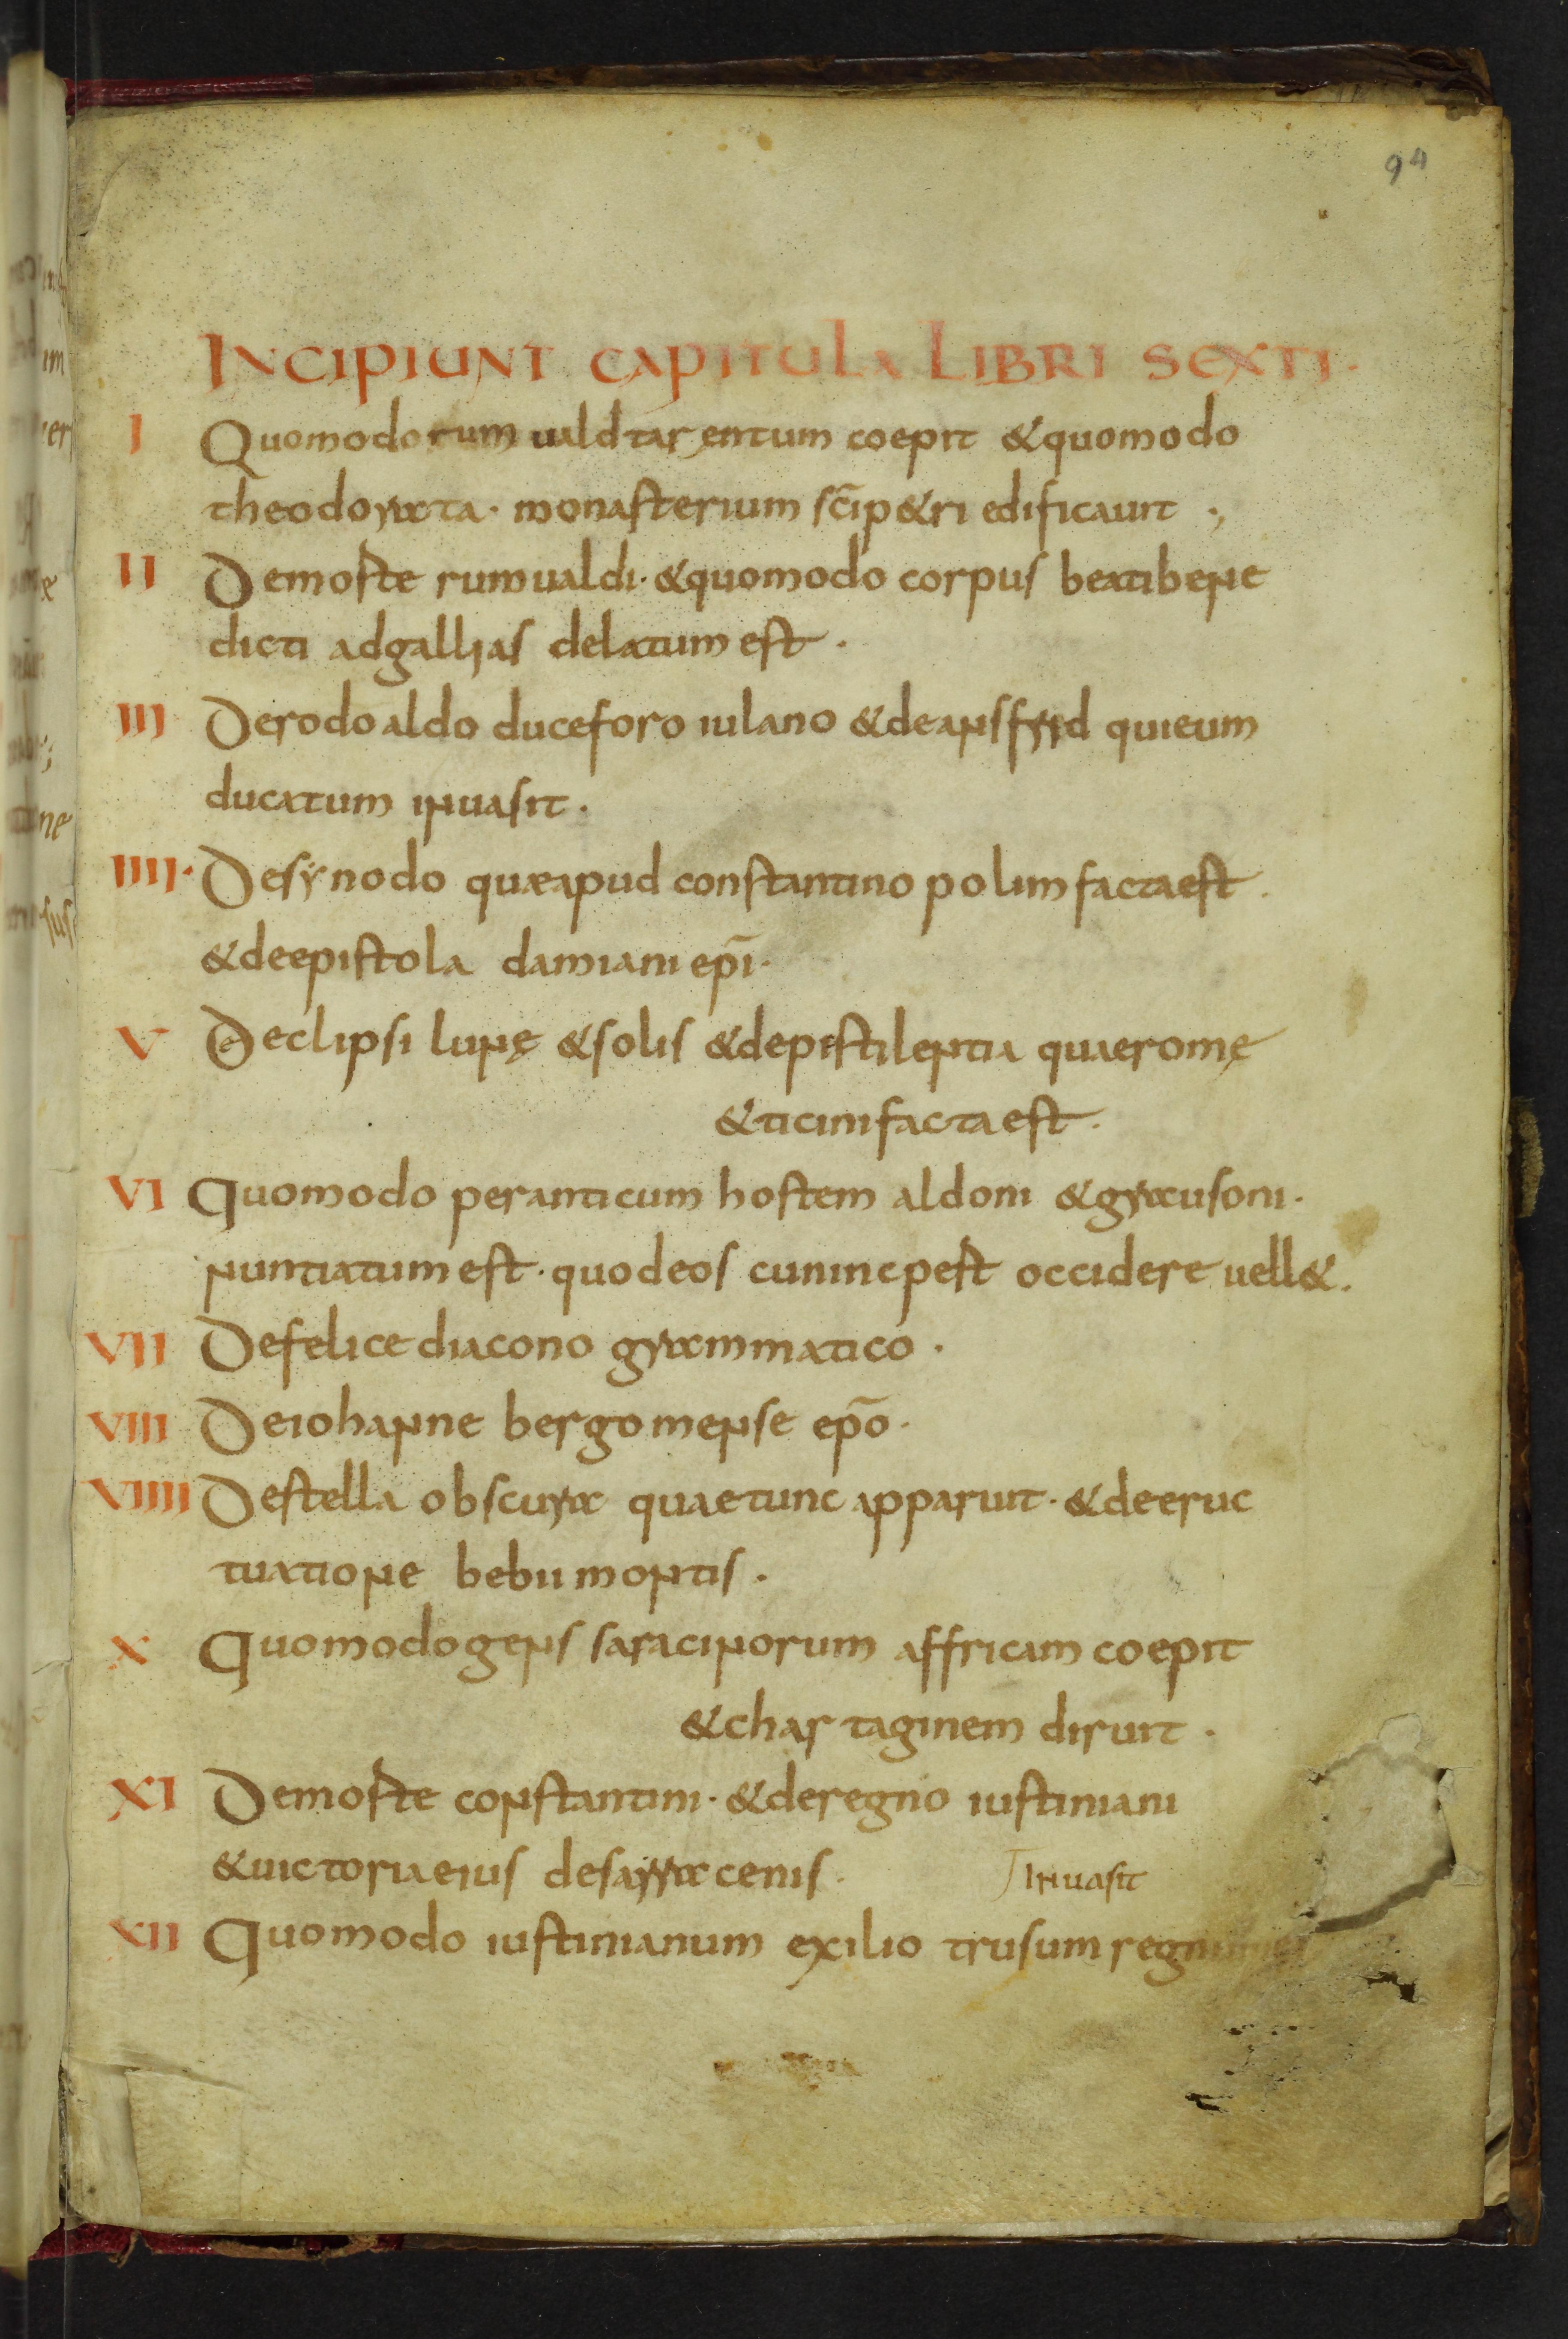 94
INCIPIUNT CAPITULA LIBRI SEXTI·
I Quomodo rumuald tarentum coepit & quomodo
theodorata· monasterium sc̄i p&ri edificauit ·,
II De moste rumualdi· & quomodo corpus beati bene
dicti ad gallias delatum est·
III De rodoaldo duce foro iulano & de ansfrid qui eum
ducatum inuasit·
IIII· De synodo quae apud constantinopolim facta est·
& de epistola damiani ep̄i·
V De eclipsi lunę & solis & de pistilentia quae romę
& ticini facta est·
VI Quomodo per anticum hostem aldoni & grausoni·
nuntiatum est· quod eos cunincpest occidere uell&·
VII De felice diacono grammatico·
VIII De iohanne bergomense ep̄o·
VIIII De stella obscura quae tunc apparuit· & de eruc
tuatione bebii montis·
X Quomodo gens saracinorum affricam coepit
& chartaginem diruit·
XI De moste constantini· & de regno iustiniani
& uictoria eius de sarracenis·
inuasit
XII Quomodo iustinianum exilio trusum regnum